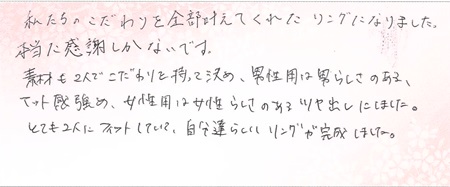 私たちのこだわりを全部叶えてくれたリングになりました。
本当に感謝しかないです。
素材も2人でこだわりを持って決め、男性用は男らしさのある、
マット感強め、女性用は女性らしさのあるツヤ出しにしました。
とても2人にフィットしていて、自分達らしいリングが完成しました。